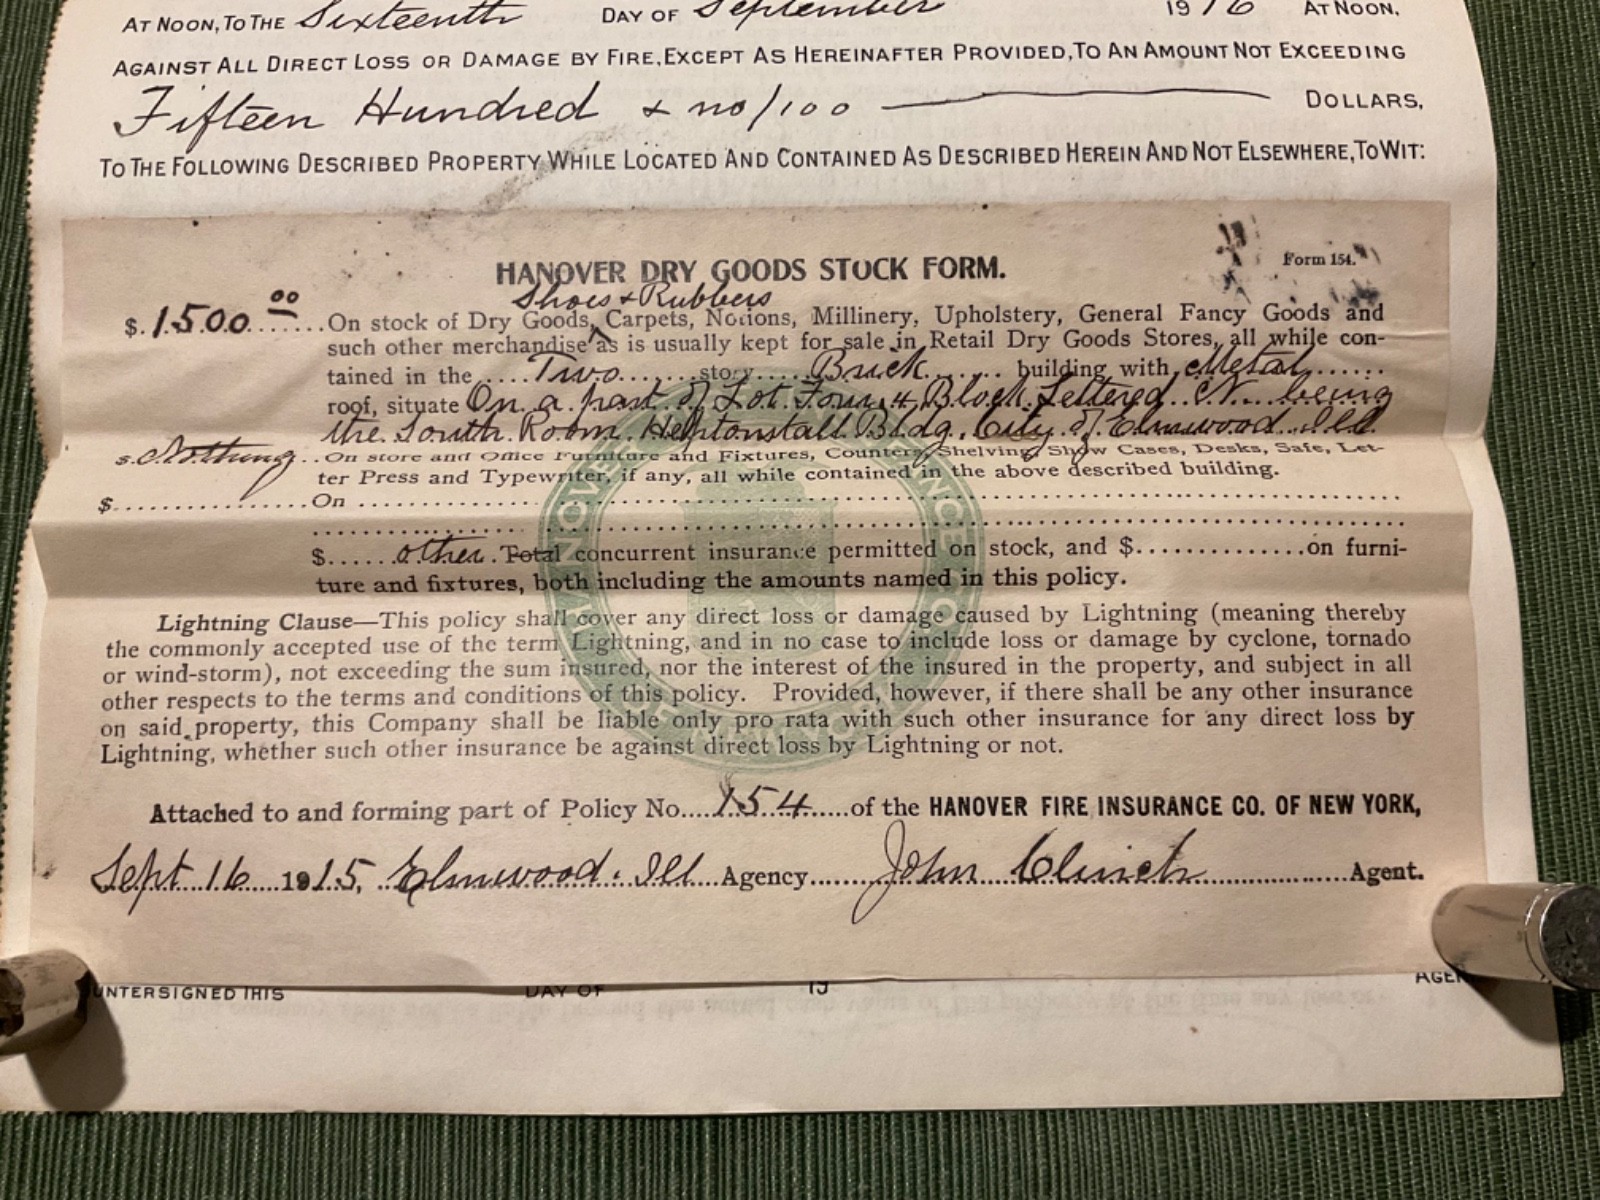 AT NOON, TO THE Sixteenth DAY OF September 1916 AT NOON,
AGAINST ALL DIRECT LOSS OR DAMAGE BY FIRE, EXCEPT AS HEREINAFTER PROVIDED, TO AN AMOUNT NOT EXCEEDING
Fifteen Hundred & no/100 DOLLARS,
TO THE FOLLOWING DESCRIBED PROPERTY WHILE LOCATED AND CONTAINED AS DESCRIBED HEREIN AND NOT ELSEWHERE, TO WIT:
HANOVER DRY GOODS STOCK FORM.
Form 154.
Shoes & Rubbers
$.1500.00.......On stock of Dry Goods, Carpets, Notions, Millinery, Upholstery, General Fancy Goods and
such other merchandise as is usually kept for sale in Retail Dry Goods Stores, all while con-
tained in the ....Two......story.....Brick...... building with Metal......
roof, situate On a part of Lot Four 4 Block Lettered N. being
the South Room Heptonstall Bldg. City of Elmwood Ill
$.Nothing...On store and Office Furniture and Fixtures, Counters, Shelving, Show Cases, Desks, Safe, Let-
ter Press and Typewriter, if any, all while contained in the above described building.
$....................On
$......other. Total concurrent insurance permitted on stock, and $...............on furni-
ture and fixtures, both including the amounts named in this policy.
Lightning Clause—This policy shall cover any direct loss or damage caused by Lightning (meaning thereby
the commonly accepted use of the term Lightning, and in no case to include loss or damage by cyclone, tornado
or wind-storm), not exceeding the sum insured, nor the interest of the insured in the property, and subject in all
other respects to the terms and conditions of this policy. Provided, however, if there shall be any other insurance
on said property, this Company shall be liable only pro rata with such other insurance for any direct loss by
Lightning, whether such other insurance be against direct loss by Lightning or not.
Attached to and forming part of Policy No....154....of the HANOVER FIRE INSURANCE CO. OF NEW YORK,
Sept 16....1915, Elmwood. Ill...Agency.......John Clinch...............Agent.
UNTERSIGNED THIS DAY OF 19